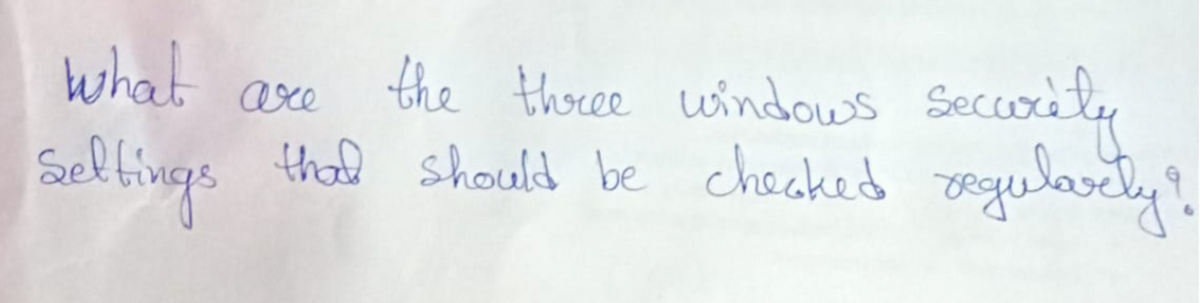 What are the three windows security
settings that should be checked regularly?